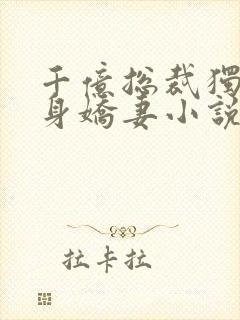 千億総裁獨
身嬌妻小說
拉卡拉